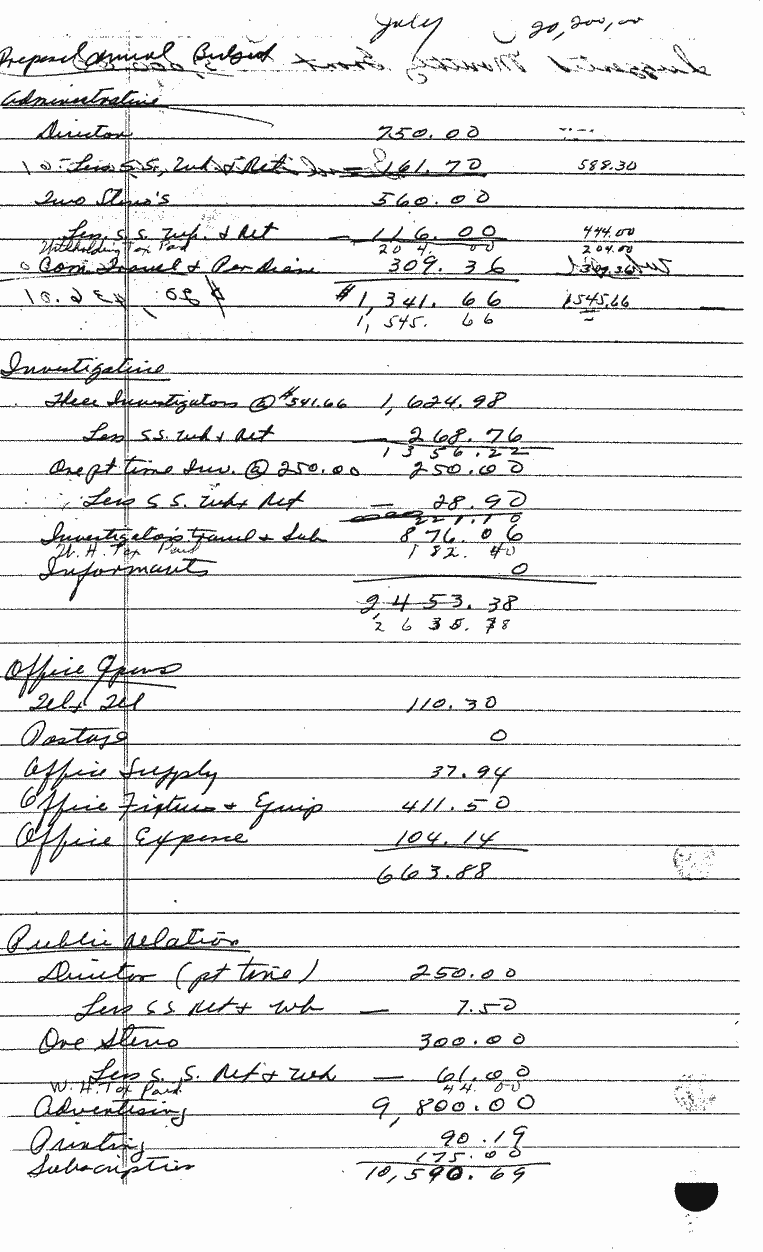 July 20,200.00
Proposed Annual Budget
Administrative
Director 750.00
Less S.S., Wh & Ret — 161.70 588.30
Two Steno's 560.00
Less S.S. Wh. & Ret — 116.00 444.00
Withholding Tax Paid 204.00 204.00
Com. Travel & Per Diem 309.36 309.36
$1,341.66 1545.66
1,545.66
Investigative
Three Investigators @ $541.66 1,624.98
Less S.S. Wh & Ret — 268.76
1356.22
One pt time Inv. @ 250.00 250.00
Less S.S. Wh & Ret — 28.90
221.10
Investigator's travel & Sub 876.06
W.H. Tax Paid 182.40
Informants 0
2453.38
2635.78
Office Expens
Tel & Tel 110.30
Postage 0
Office Supply 37.94
Office Fixtures & Equip 411.50
Office Expense 104.14
663.88
Public relation
Director (pt time) 250.00
Less S S Ret & Wh — 7.50
One Steno 300.00
Less S. S. Ret & Wh — 61.00
W.H. Tax Paid 44.00
Advertising 9,800.00
Printing 90.19
Subscription 175.00
10,590.69